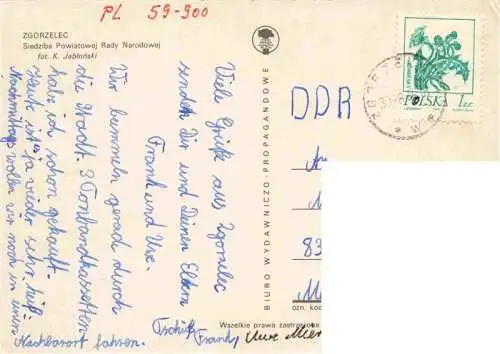 PL 59-900
ZGORZELEC
Siedziba Powiatowej Rady Narodowej
fot. K. Jabłoński
Viele Grüße aus Zgorzelec
senden Dir und Deinen Eltern
Frank und Uwe.
Wir bummeln gerade durch
die Stadt. 3 Tonbandkassetten
habe ich schon gekauft.
Heute ist es ja wieder sehr heiß
Nachmittags wollen wir noch in einen
Nachbarort fahren.
Tschüß
Frank, Uwe
BIURO WYDAWNICZO-PROPAGANDOWE
Wszelkie prawa zastrzeżone
ozn. kod
POLSKA 1 ZŁ
DDR
83